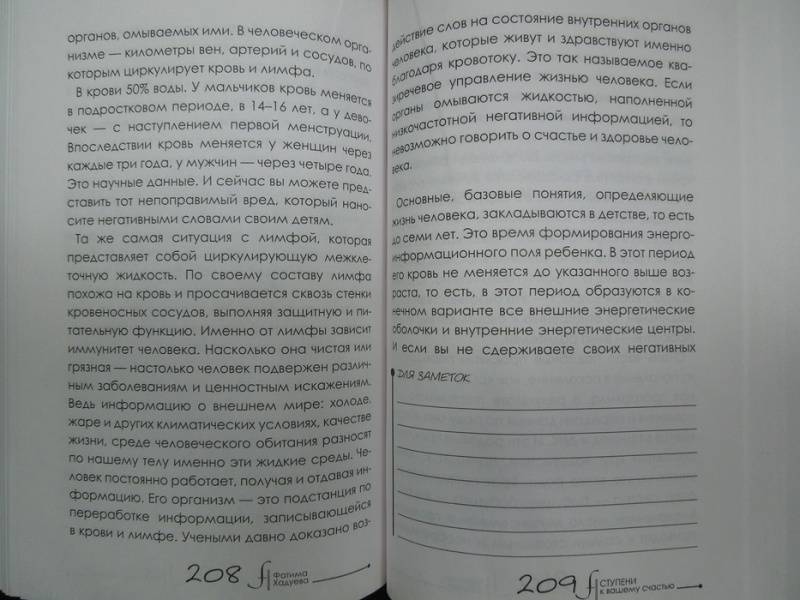 органов, омываемых ими. В человеческом орга-
низме — километры вен, артерий и сосудов, по
которым циркулирует кровь и лимфа.
В крови 50% воды. У мальчиков кровь меняется
в подростковом периоде, в 14–16 лет, а у дево-
чек — с наступлением первой менструации.
Впоследствии кровь меняется у женщин через
каждые три года, у мужчин — через четыре года.
Это научные данные. И сейчас вы можете пред-
ставить тот непоправимый вред, который нано-
сите негативными словами своим детям.
Та же самая ситуация с лимфой, которая
представляет собой циркулирующую межкле-
точную жидкость. По своему составу лимфа
похожа на кровь и просачивается сквозь стенки
кровеносных сосудов, выполняя защитную и пи-
тательную функцию. Именно от лимфы зависит
иммунитет человека. Насколько она чистая или
грязная — настолько человек подвержен различ-
ным заболеваниям и ценностным искажениям.
Ведь информацию о внешнем мире: холоде,
жаре и других климатических условиях, качестве
жизни, среде человеческого обитания разносят
по нашему телу именно эти жидкие среды. Че-
ловек постоянно работает, получая и отдавая ин-
формацию. Его организм — это подстанция по
переработке информации, записывающейся
в крови и лимфе. Учеными давно доказано воз-
208 Фатима
Хадуева
действие слов на состояние внутренних органов
человека, которые живут и здравствуют именно
благодаря кровотоку. Это так называемое ква-
зиречевое управление жизнью человека. Если
органы омываются жидкостью, наполненной
низкочастотной негативной информацией, то
невозможно говорить о счастье и здоровье чело-
века.
Основные, базовые понятия, определяющие
жизнь человека, закладываются в детстве, то есть
до семи лет. Это время формирования энерго-
информационного поля ребенка. В этот период
его кровь не меняется до указанного выше воз-
раста, то есть, в этот период образуются в ко-
нечном варианте все внешние энергетические
оболочки и внутренние энергетические центры.
И если вы не сдерживаете своих негативных
ДЛЯ ЗАМЕТОК
209 СТУПЕНИ
к вашему счастью